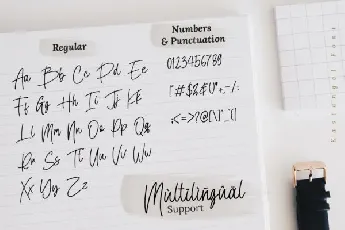 Regular
Aa Bb Cc Dd Ee
Ff Gg Hh Ii Jj Kk
Ll Mm Nn Oo Pp Qq
Rr Ss Tt Uu Vv Ww
Xx Yy Zz
Numbers
& Punctuation
0123456789
;<=>?@[\]^_{|
Multilingual
Support